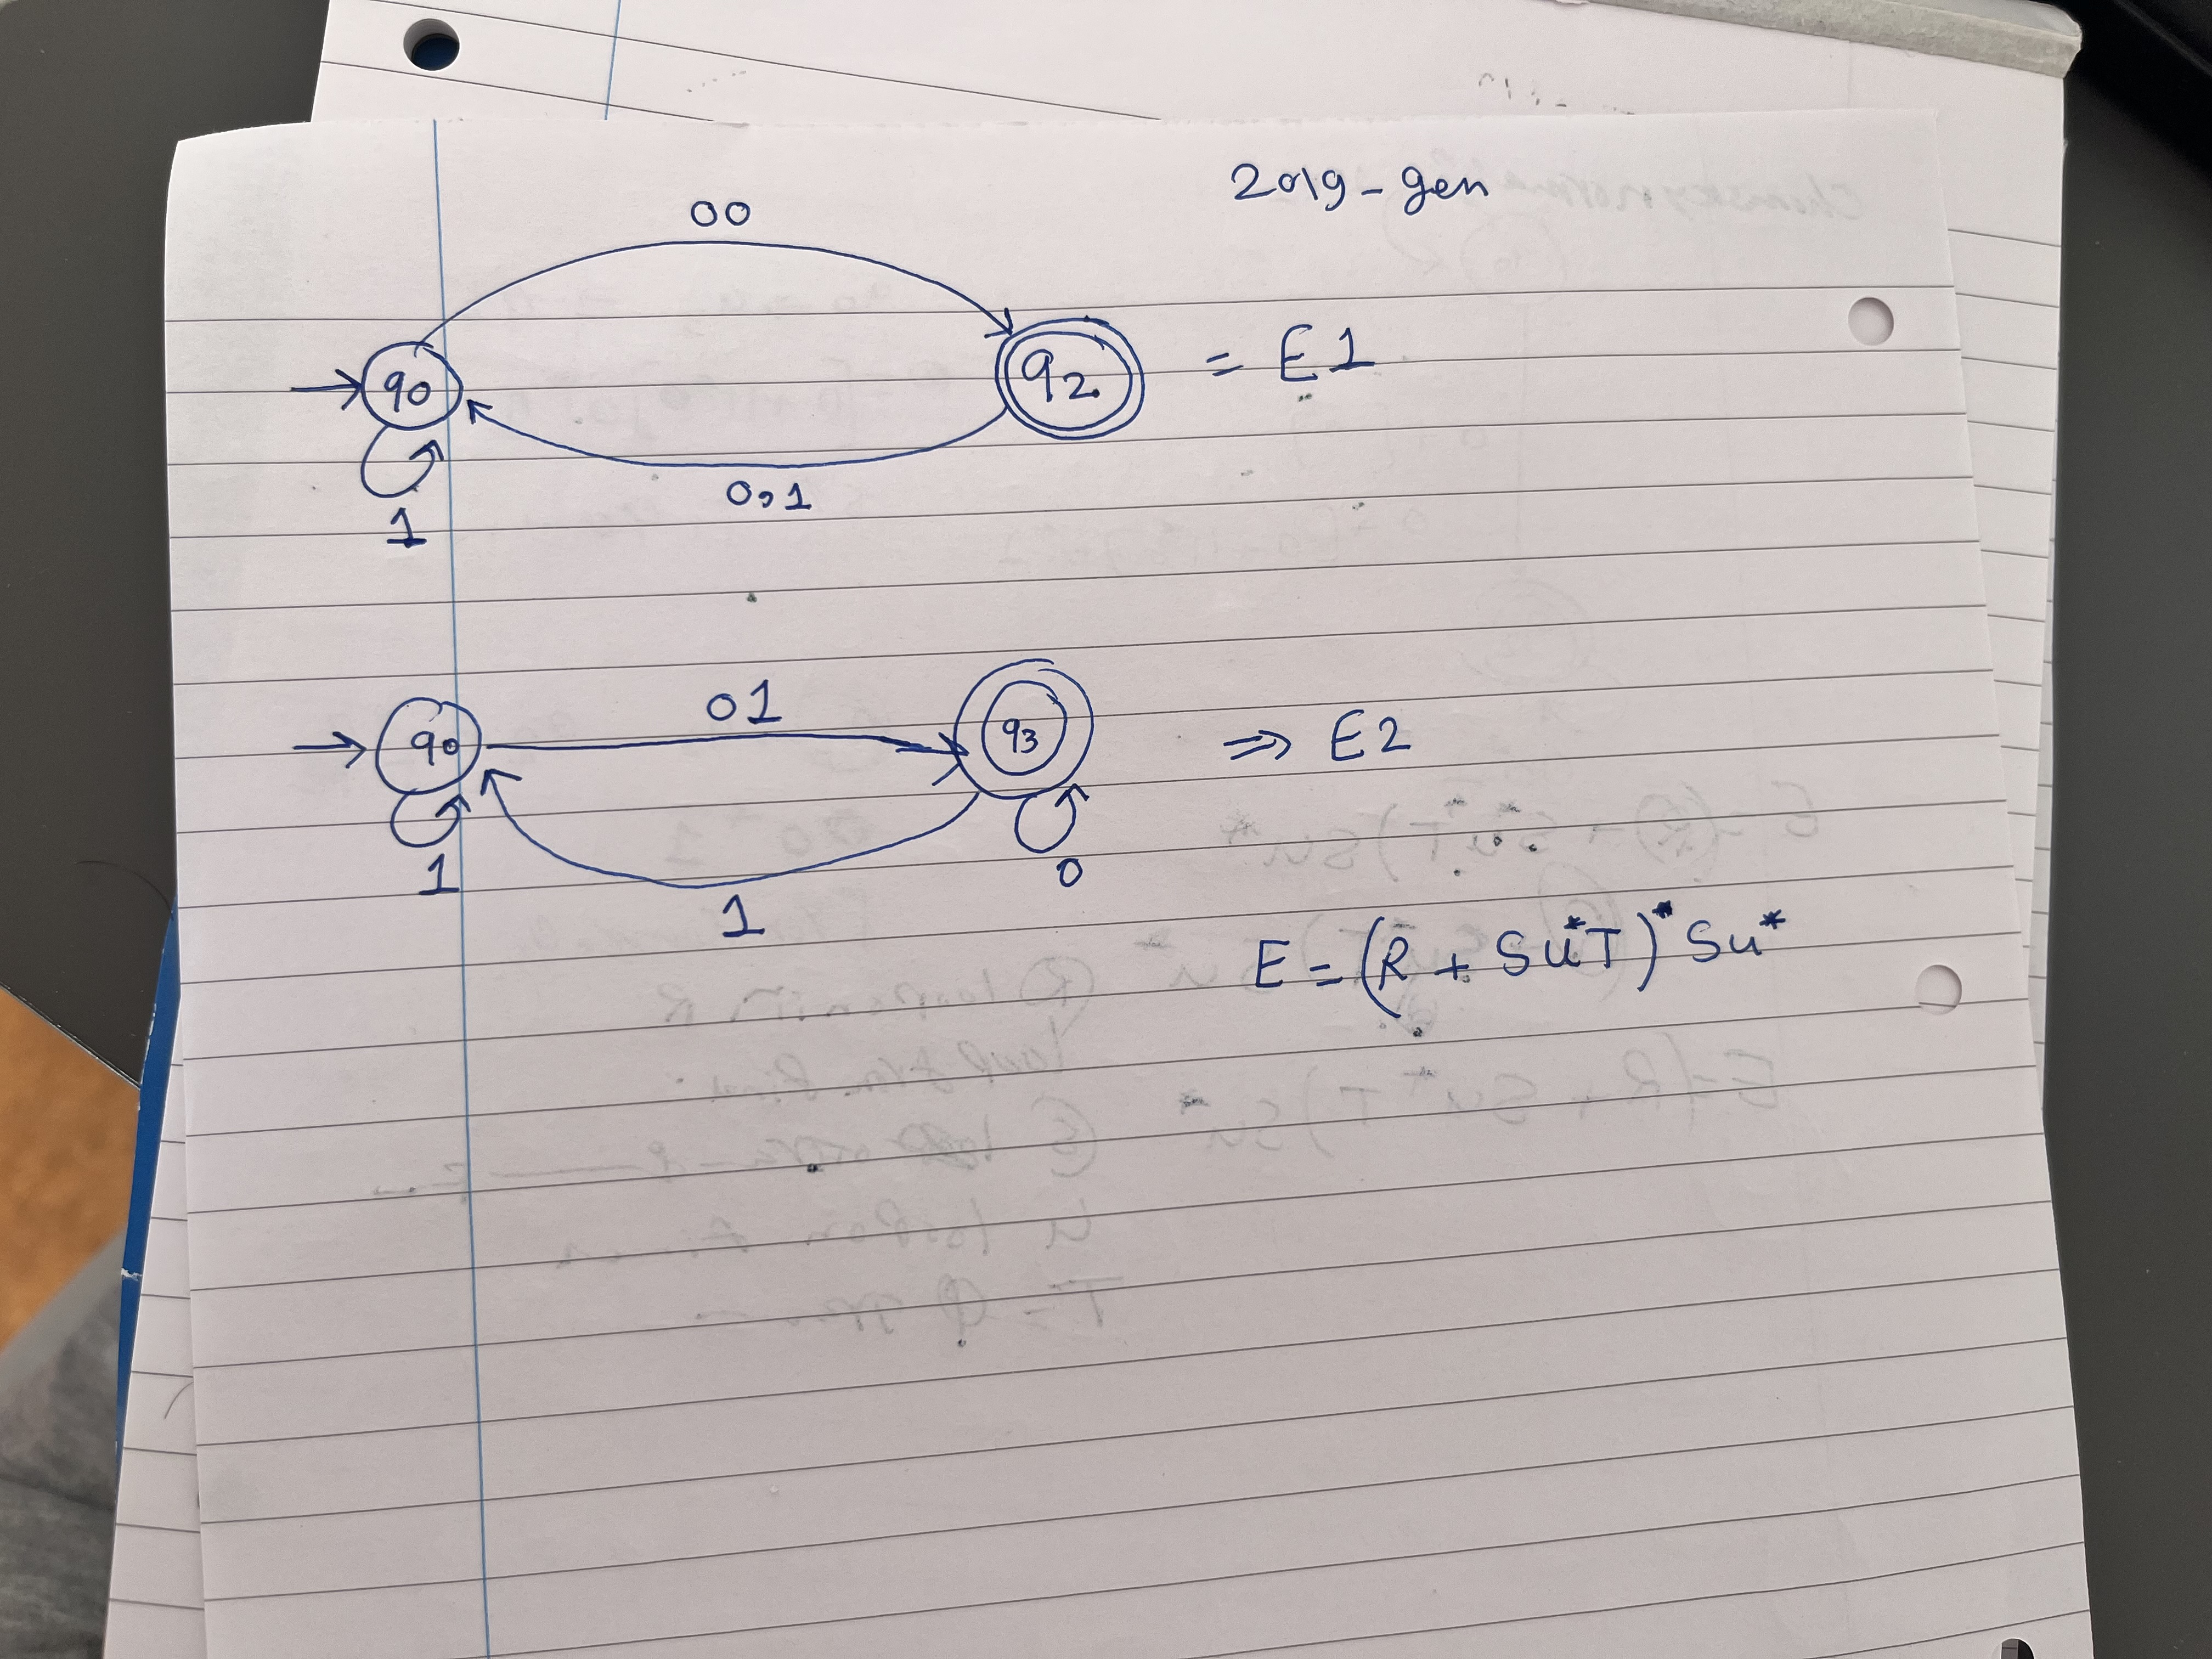 2019 - gen
00
q0
q2
= E1
0,1
1
01
q0
q3
⇒ E2
1
0
1
E = (R + SU*T)* SU*